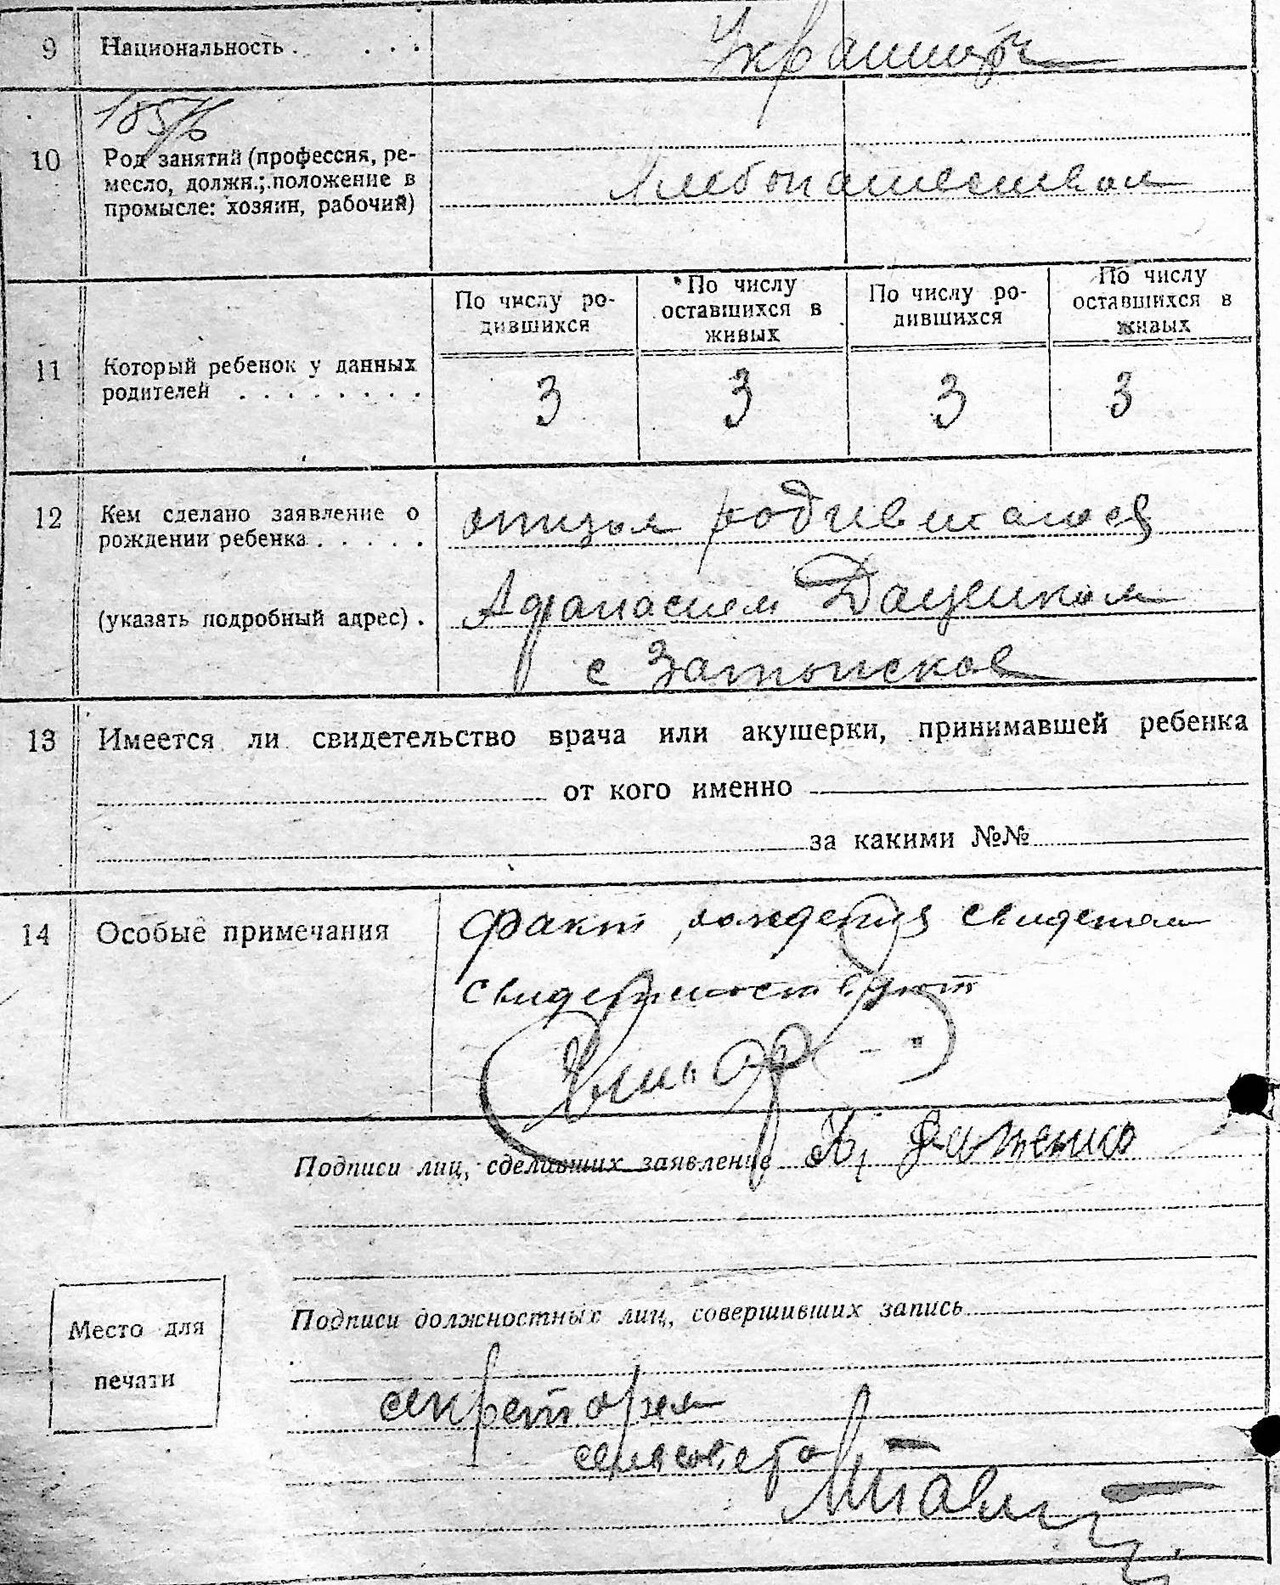 9 Национальность . . . . Украинцы
10 Род занятий (профессия, ре-
месло, должн.; положение в
промысле: хозяин, рабочий)
Хлебопашеством
11 Который ребенок у данных
родителей . . . . . . . .
По числу ро-
дившихся
По числу
оставшихся в
живых
По числу ро-
дившихся
По числу
оставшихся в
живых
3 3 3 3
12 Кем сделано заявление о
рождении ребенка . . . . .
(указать подробный адрес) .
отцом родившагося
Афанасием Даценком
с Затонское
13 Имеется ли свидетельство врача или акушерки, принимавшей ребенка
от кого именно
за какими №№
14 Особые примечания
факт рождения свидетели
свидетельствуют
Подписи лиц, сделавших заявление
Подписи должностных лиц, совершивших запись
Место для
печати
секретарь
сельсовета